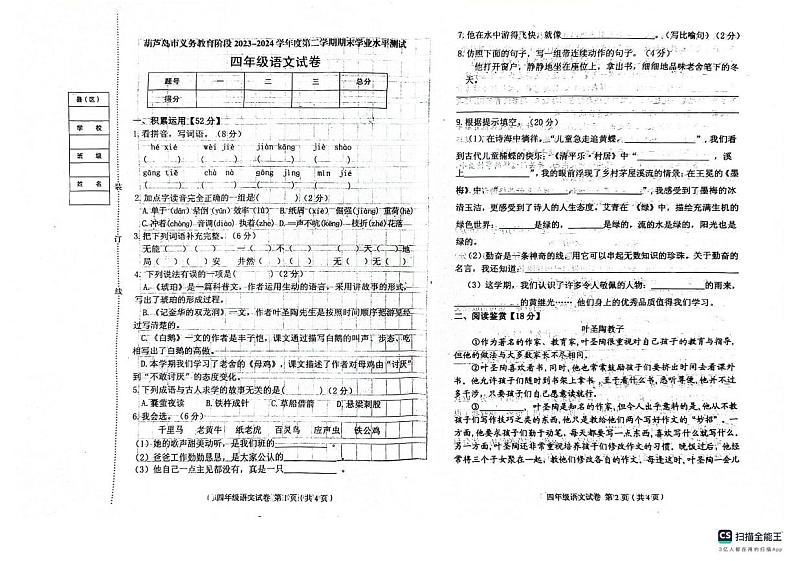 县(区)
学 校
班 级
姓 名
装
订
线
葫芦岛市义务教育阶段 2023-2024 学年度第二学期期末学业水平测试
四年级语文试卷
题号 一 二 三 总分
得分
一、积累运用【52 分】
1. 看拼音，写词语。（8 分）
hé xié wèi jiè jiàn kāng jié shào
( ) ( ) ( ) ( )
chà zǐ gǒng gù gōng jìng mǐn jié
( ) ( ) ( ) ( )
2. 加点字读音完全正确的一组是( )(2 分)
A. 单于(dān) 晕倒(yūn) 效率(lǜ) B. 纸屑(xiè) 倔强(jiàng) 重荷(hè)
C. 冲着(chòng) 音调(diào) 执着(zhe) D. 一声不吭(kēng) 枝折(zhé)花落
3. 把下列词语补充完整。（6 分）
无能( )( ) 一( )不( ) ( )天( )地
局( )( )安 井然( )( ) 无( )无( )
4. 下列说法有误的一项是( )(2 分)
A.《琥珀》是一篇科普文，作者运用生动的语言，采用讲故事的形式，
写出了琥珀的形成过程。
B.《记金华的双龙洞》一文，作者叶圣陶先生是按照时间顺序把游览经
过写清楚的。
C.《白鹅》一文的作者是丰子恺，课文通过描写白鹅的叫声、步态、吃
相写出了白鹅的高傲。
D. 本学期我们学习了老舍的《母鸡》，课文描述了作者对母鸡由“讨厌”
到“不敢讨厌”的态度变化。
5. 下列成语与古人求学的故事无关的是( )(2 分)
A. 囊萤夜读 B. 铁杵成针 C. 草船借箭 D. 悬梁刺股
6. 我会选。（6 分）
千里马 老黄牛 纸老虎 百灵鸟 应声虫 铁公鸡
(1) 她的歌声甜美动听，是我们班的 。
(2) 爸爸工作勤勤恳恳，是大家公认的 。
(3) 他自己一点主见都没有，真是一只 。
四年级语文试卷 第 1 页 (共 4 页)
7. 他在水中游得飞快，就像 。（写比喻句）(2 分)
8. 仿照下面的句子，写一组带连续动作的句子。（4 分）
他打开窗户，静静地坐在座位上，拿出书，细细地品味老舍笔下的冬
天。
9. 根据提示填空。（20 分）
(1) 在诗海中徜徉，“儿童急走追黄蝶， ”，我们看
到古代儿童捕蝶的快乐；《清平乐·村居》中“ ，溪
上 ”，我的眼前浮现了乡村茅屋溪流的情景；在王冕的《墨
梅》中，“ ， ”，我感受到了墨梅的冰
清玉洁，更感受到了诗人的人生态度。艾青在《绿》中，描绘充满生机的
绿色世界： 是绿的， 是绿的，流的水是绿的，阳光也
是绿的。
(2) 勤奋是一条神奇的线，用它可以串起无数知识的珍珠。关于勤奋的
名言，我还知道：
(3) 这学期，我们认识了许多令人敬佩的人物。 的雨来，
的黄继光…… 他们身上的优秀品质值得我们学习。
二、阅读鉴赏【18 分】
叶圣陶教子
①作为著名的作家、教育家，叶圣陶很重视对自己孩子的教育与指导，
但他的做法与大多数家长不尽相同。
②叶圣陶喜欢看书，同时，他也常常鼓励孩子们要挤出时间去看课外
书。他允许孩子们随时到书架上拿书，至于看什么书，悉听尊便，他并不过
多干涉，只要孩子们自己愿意读就行。
③ ，叶圣陶是知名的作家，但令人出乎意料的是，他从不教
孩子们写作技巧之类的东西，他只是教给他们两个写好作文的“妙招”。一
方面，他要求孩子们勤于动笔，每天都要写一点东西，喜欢写什么就写什么。
另一方面，叶圣陶还非常重视培养孩子们修改作文的习惯。晚饭过后，他经
常将三个子女聚在一起，教他们修改各自的作文。每逢这时，叶圣陶一会儿
四年级语文试卷 第 2 页 (共 4 页)
CS 扫描全能王
3亿人都在用的扫描App